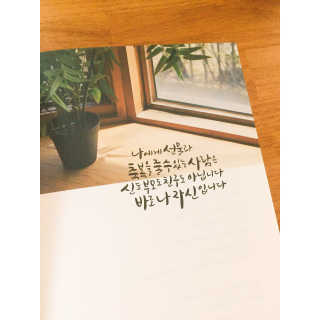 나에게 선물과
축복을 줄 수 있는 사람은
신도 부모도 친구도 아닙니다
바로 나 자신입니다